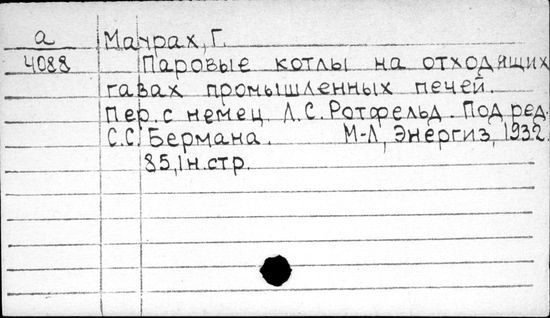 а Маурах, Г.
4088 Паровые котлы на отходящих
газах промышленных печей.
Пер. с немец. Л.С. Ротфельд. Под ред.
С.С. Бермана. М-Л, Энергиз, 1932.
85,1н.стр.